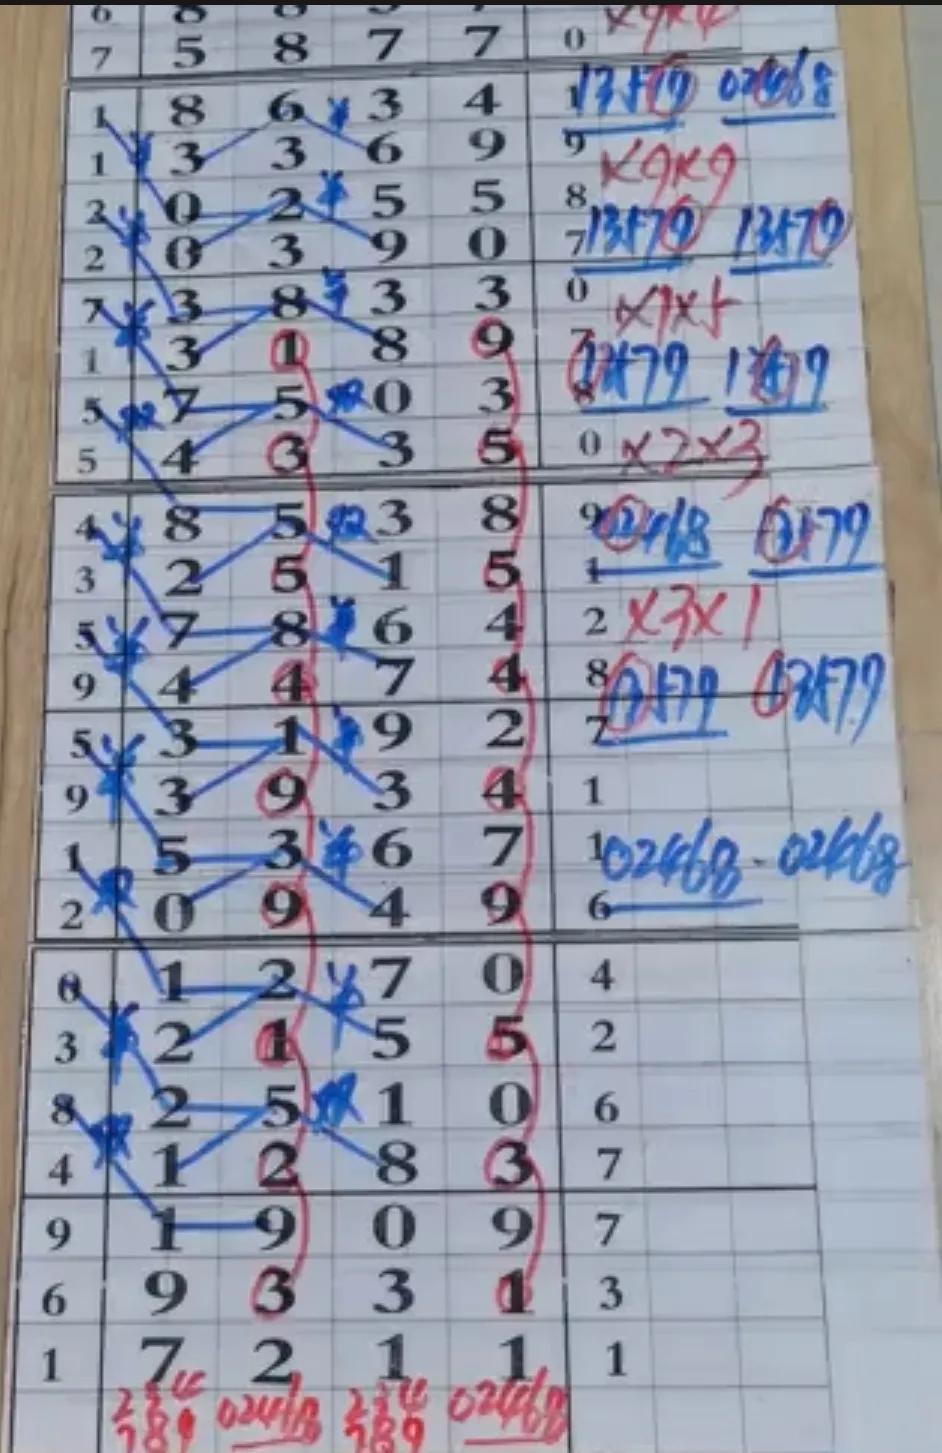 6 8 8
7 5 8 7 7 0 ×9×4
1 8 6 3 4 1 13579 02468
1 3 3 6 9 9 ×9×9
2 0 2 5 5 8
2 0 3 9 0 7 13579 13579
7 3 8 3 3 0 ×1×5
1 3 1 8 9 7
5 7 5 0 3 8 13579 13579
5 4 3 3 5 0 ×2×3
4 8 5 3 8 9 02468 13579
3 2 5 1 5 1
5 7 8 6 4 2 ×3×1
9 4 4 7 4 8 13579 13579
5 3 1 9 2 7
9 3 9 3 4 1
1 5 3 6 7 1 02468 - 02468
2 0 9 4 9 6
0 1 2 7 0 4
3 2 1 5 5 2
8 2 5 1 0 6
4 1 2 8 3 7
9 1 9 0 9 7
6 9 3 3 1 3
1 7 2 1 1 1
234 02468 234 02468
789 789